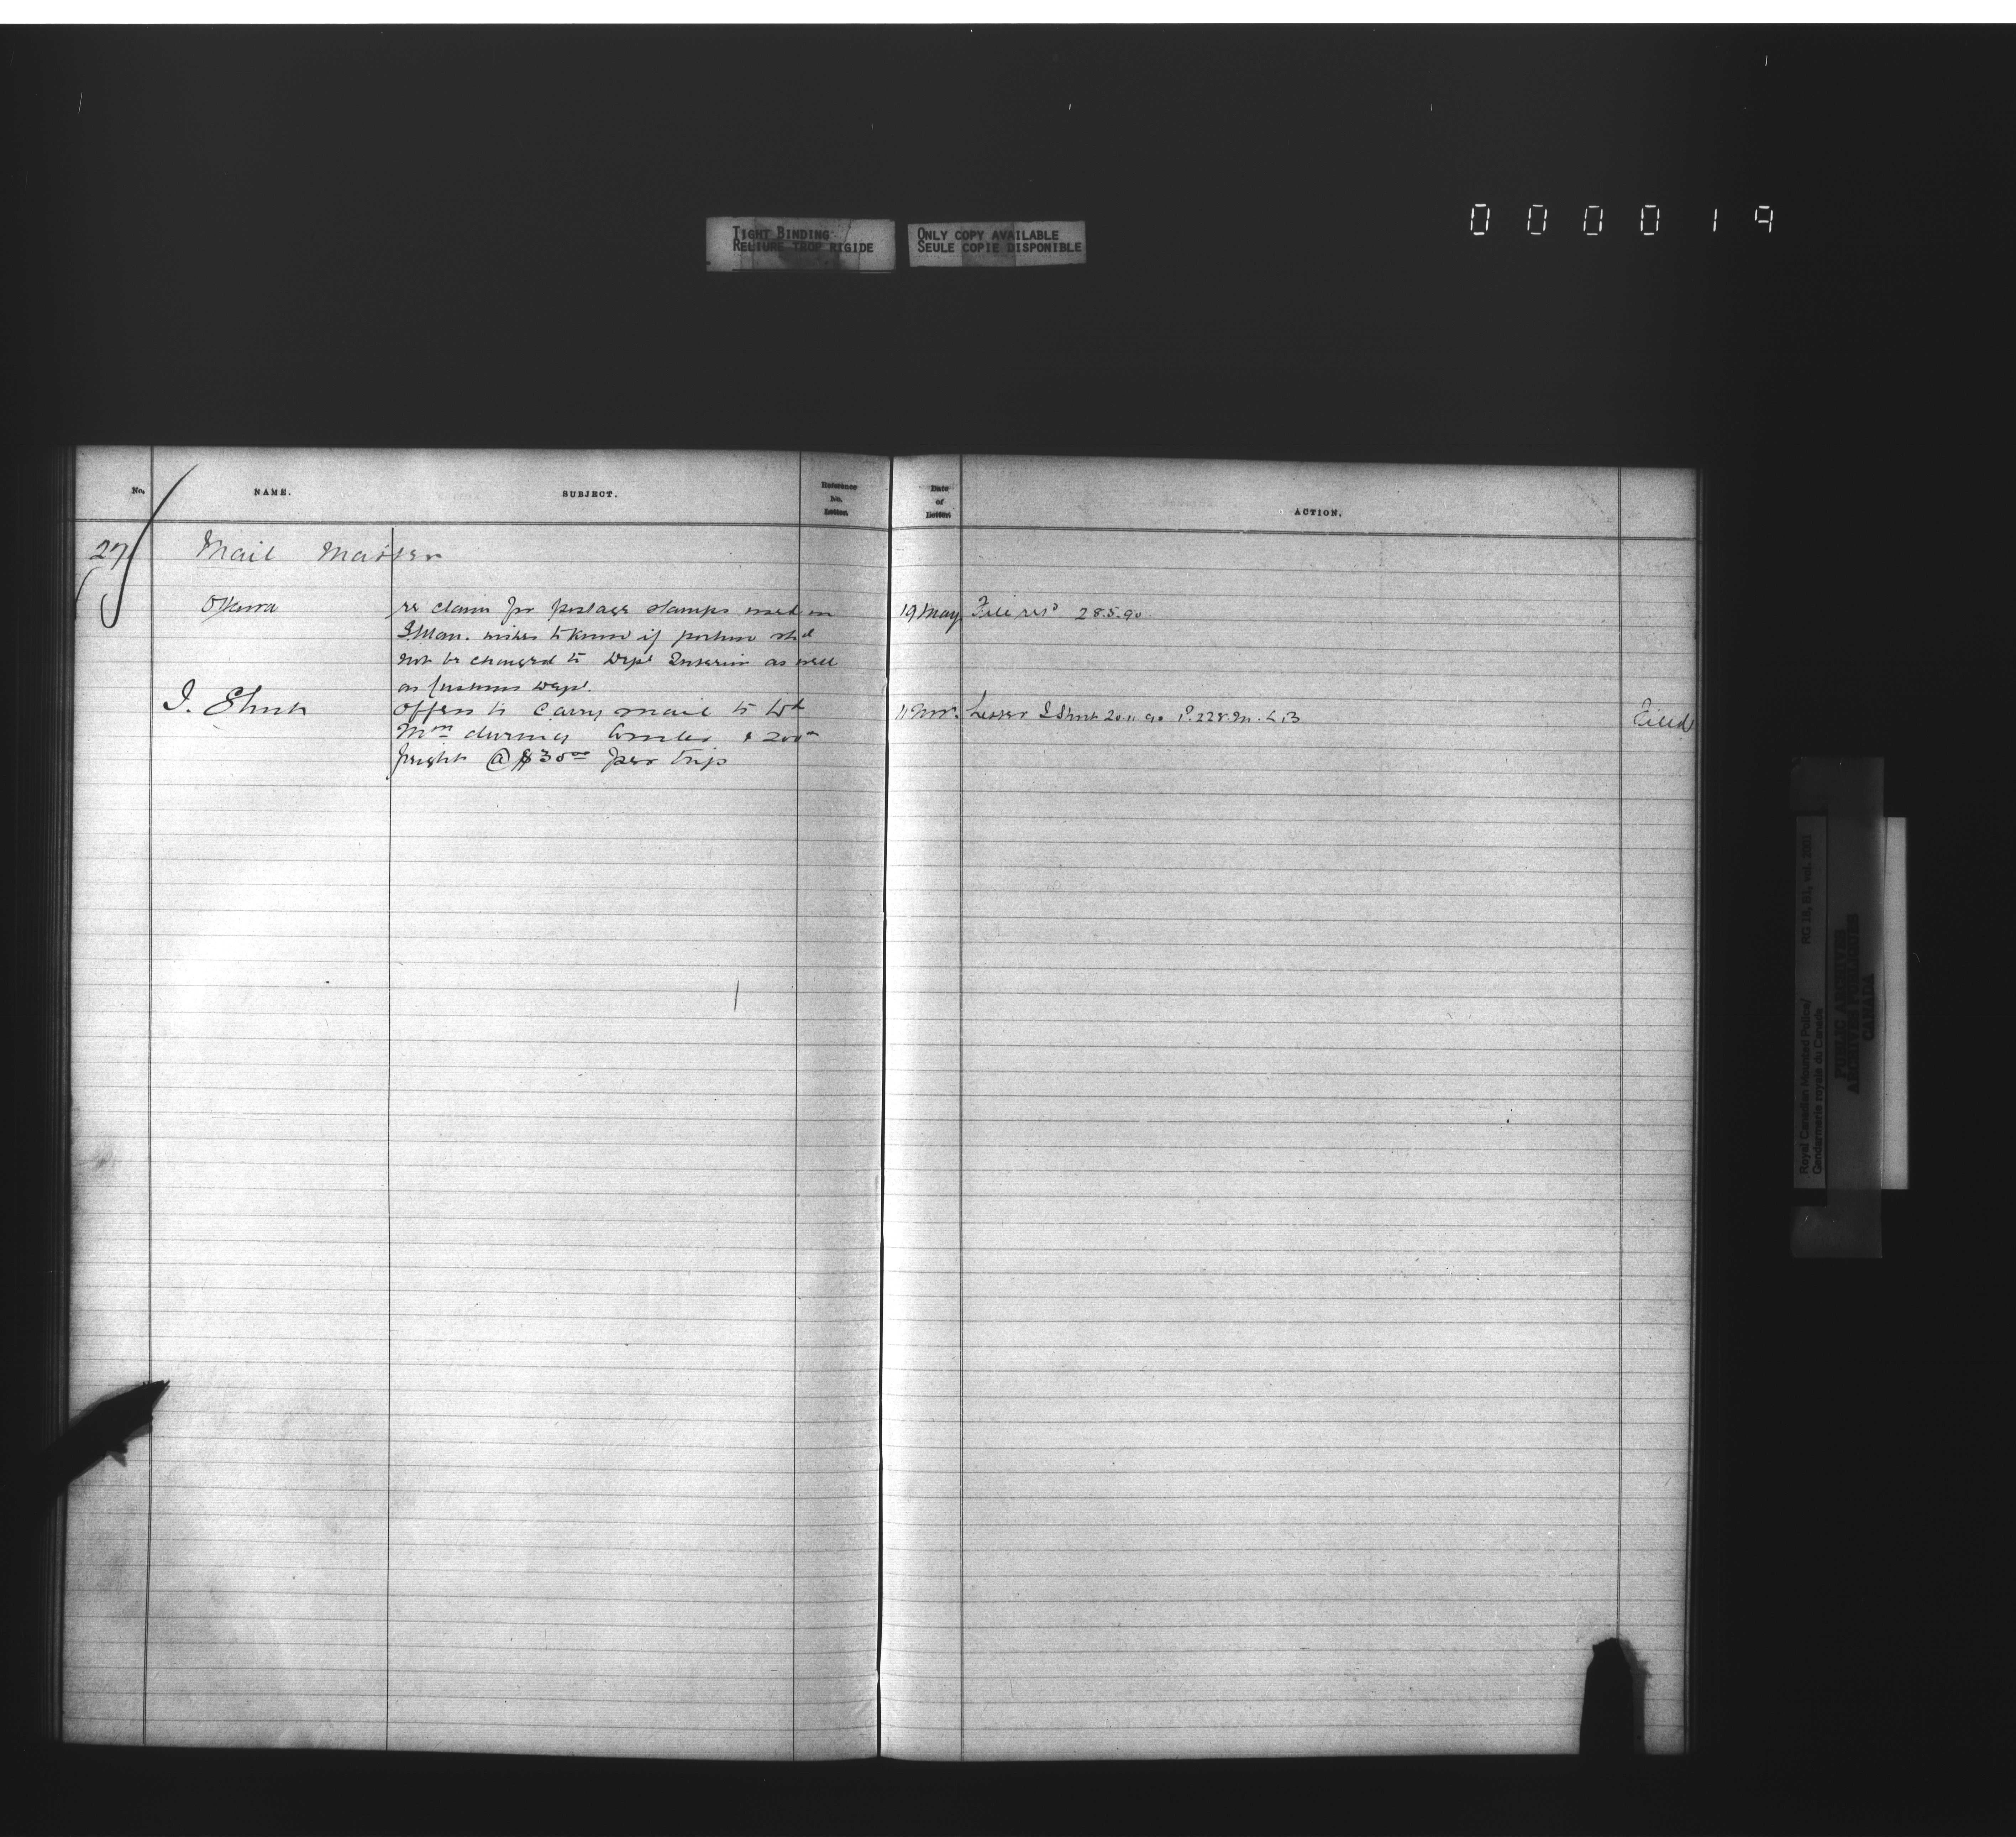 0 0 0 0 1 9
TIGHT BINDING
RELIURE TROP RIGIDE
ONLY COPY AVAILABLE
SEULE COPIE DISPONIBLE
No. NAME. SUBJECT. Reference No. Letter. Date of Letter. ACTION.
27 Mail Matter
Ottawa re claim for postage stamps used on 19 May. File retd 28.5.90
wishes to know if portion shd
not be charged to Dept Interior as well
as Customs Dept.
I. Shunk Offers to carry mail to Wd 11 Nov. Letter I Shunk 20.11.90 P. 228. M. L.B Filed
Mtn during Winter & 200
freight @ $30 00 per trip
Royal Canadian Mounted Police/
Gendarmerie royale du Canada
RG 18, B1, vol.
PUBLIC ARCHIVES
ARCHIVES PUBLIQUES
CANADA